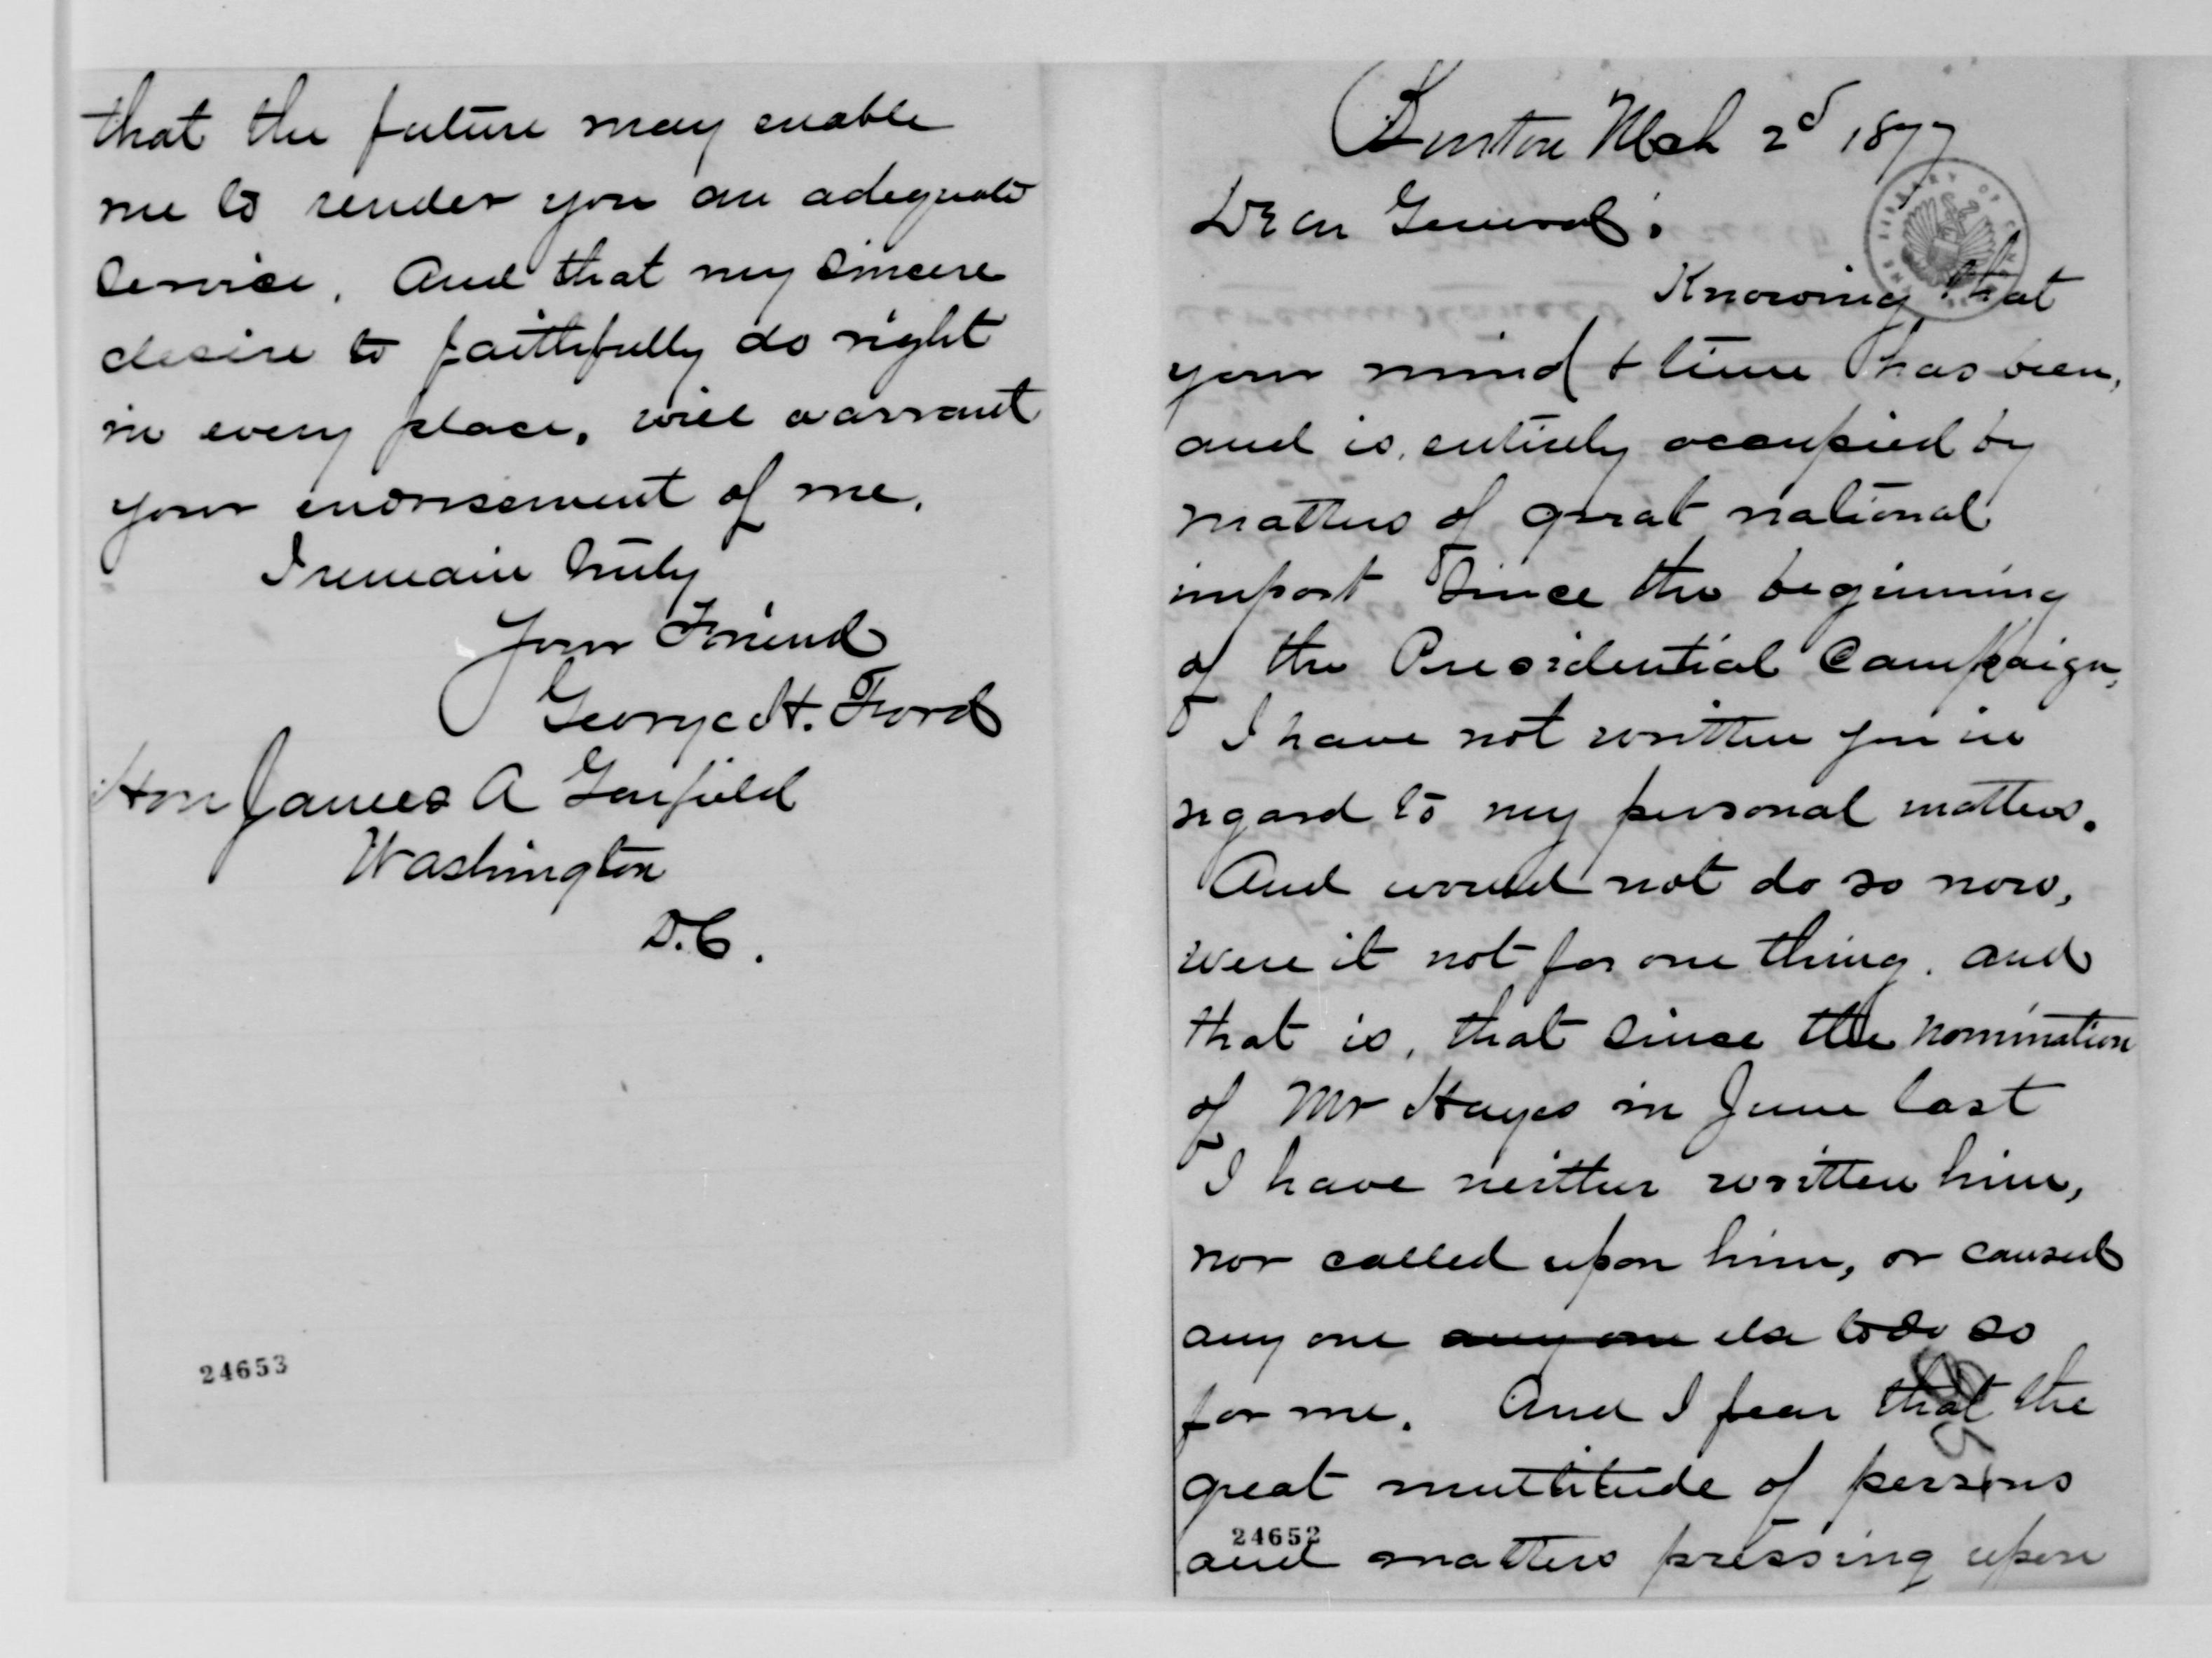 that the future may enable
me to render you an adequate
service. And that my sincere
desire to faithfully do right
in every place, will warrant
your endorsement of me.
I remain truly
Your Friend
George H. Ford
Hon James A Garfield
Washington
D.C.
24653
Burton Mch 2d 1877
Dear General:
Knowing that
your mind & time has been,
and is, entirely occupied by
matters of great national
import since the beginning
of the Presidential Campaign,
I have not written you in
regard to my personal matters.
And would not do so now,
were it not for one thing. and
that is, that since the nomination
of Mr Hayes in June last
I have neither written him,
nor called upon him, or caused
any one any one else to do so
for me. And I fear that the
great multitude of persons
24652
and matters pressing upon